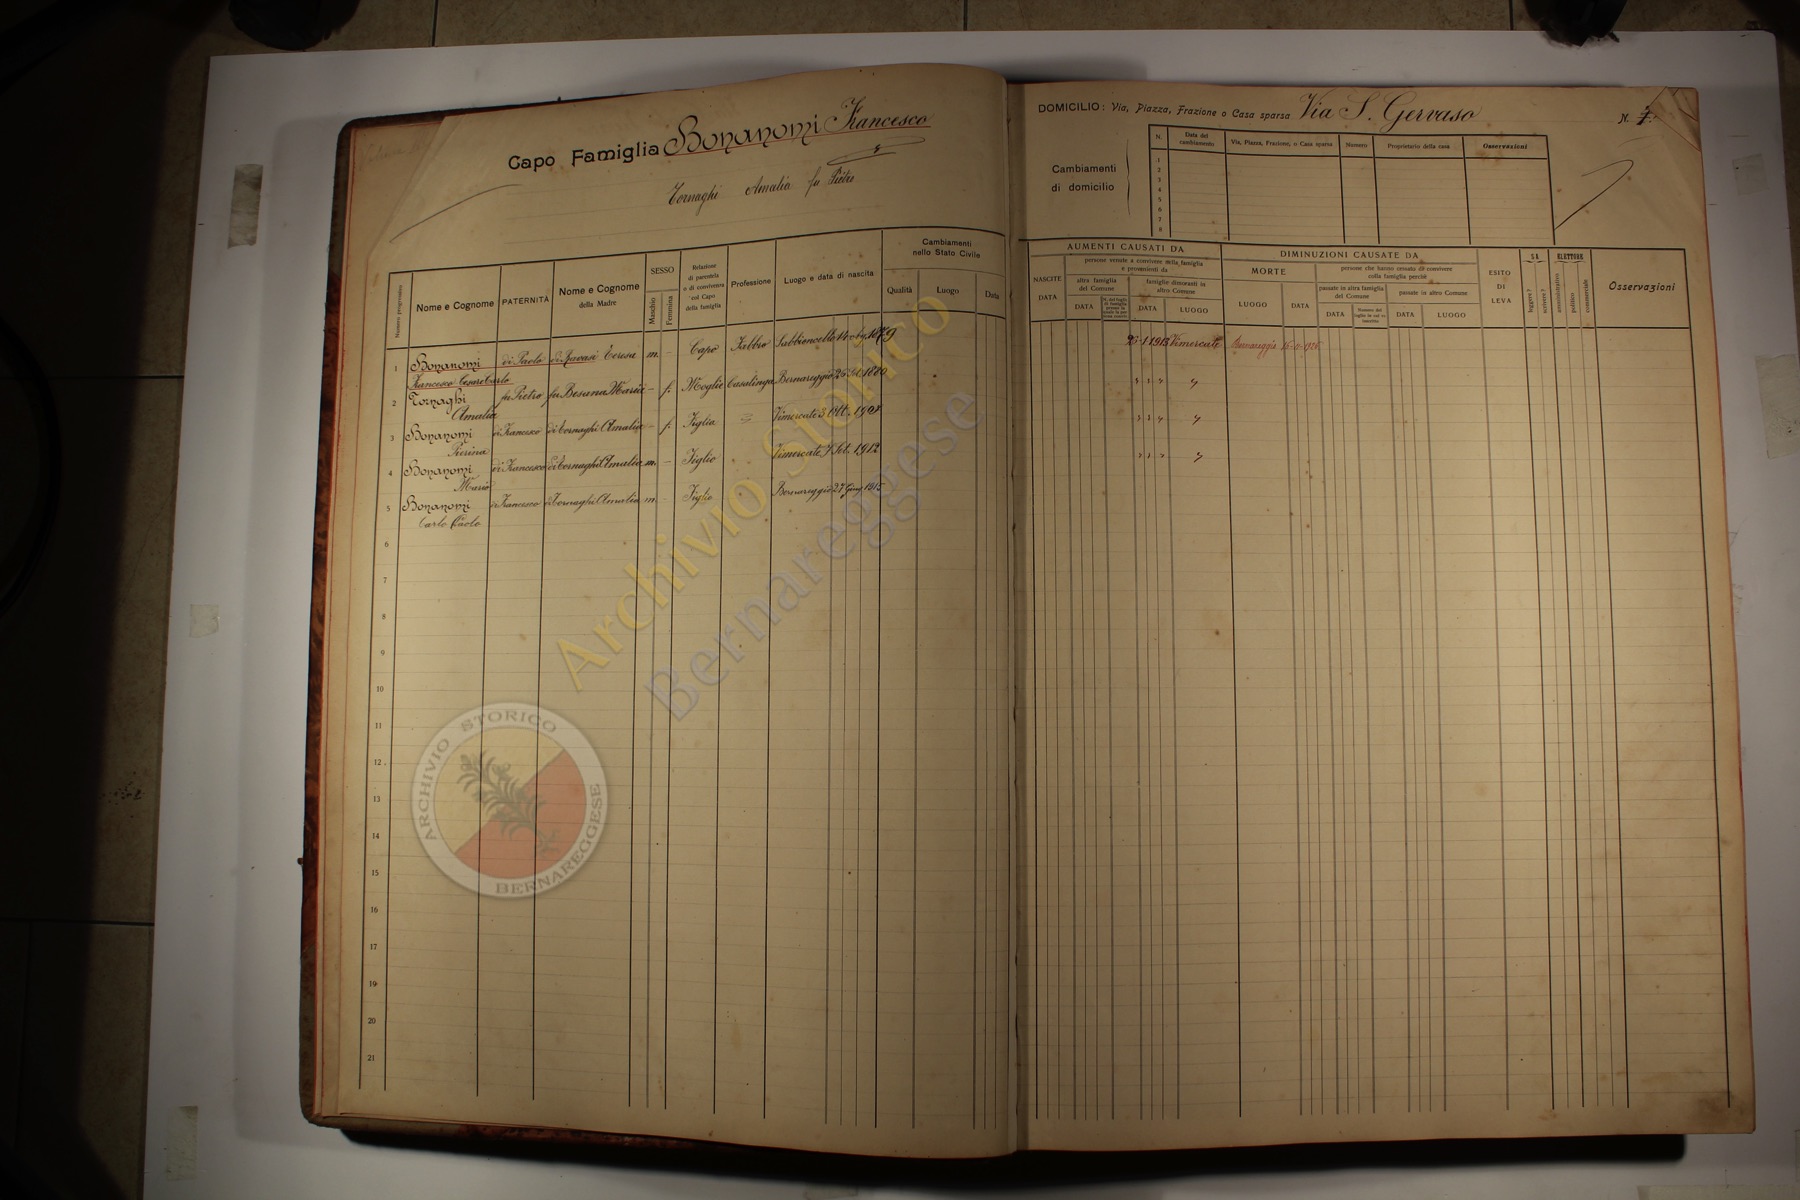 Capo Famiglia Bonanomi Francesco
Tornaghi Amalia fu Pietro
Numero progressivo
Nome e Cognome
PATERNITÀ
Nome e Cognome
della Madre
SESSO
Maschio
Femmina
Relazione
di parentela
o di convivenza
col Capo
della famiglia
Professione
Luogo e data di nascita
Cambiamenti
nello Stato Civile
Qualità
Luogo
Data
1 Bonanomi di Paolo di Ravasi Teresa m. - Capo Fabbro Sabbioncello 1879
Francesco Cesare Carlo
2 Tornaghi fu Pietro fu Besana Maria - f. Moglie Casalinga Bernareggio 1880
Amalia
3 Bonanomi di Francesco di Tornaghi Amalia - f. Figlia Vimercate 3 Ott. 1907
Pierina
4 Bonanomi di Francesco di Tornaghi Amalia m. - Figlio Vimercate 1912
Mario
5 Bonanomi di Francesco di Tornaghi Amalia m. - Figlio Bernareggio 27 Giug 1915
Carlo Paolo
6
7
8
9
10
11
12
13
14
15
16
17
19
20
21
DOMICILIO: Via, Piazza, Frazione o Casa sparsa Via S. Gervaso
N. 7.
Cambiamenti
di domicilio
N.
Data del
cambiamento
Via, Piazza, Frazione, o Casa sparsa
Numero
Proprietario della casa
Osservazioni
1
2
3
4
5
6
7
8
AUMENTI CAUSATI DA
NASCITE
DATA
persone venute a convivere nella famiglia
e provenienti da
altra famiglia
del Comune
famiglie dimoranti in
altro Comune
DATA
DATA
LUOGO
DIMINUZIONI CAUSATE DA
MORTE
LUOGO
DATA
persone che hanno cessato di convivere
colla famiglia perchè
passate in altra famiglia
del Comune
passate in altro Comune
DATA
DATA
LUOGO
ESITO
DI
LEVA
SA
leggere?
scrivere?
ELETTORE
amministrativo
politico
commerciale
Osservazioni
1913 Vimercate Bernareggio 1926
Archivio Storico
Bernareggese
ARCHIVIO STORICO
BERNAREGGESE